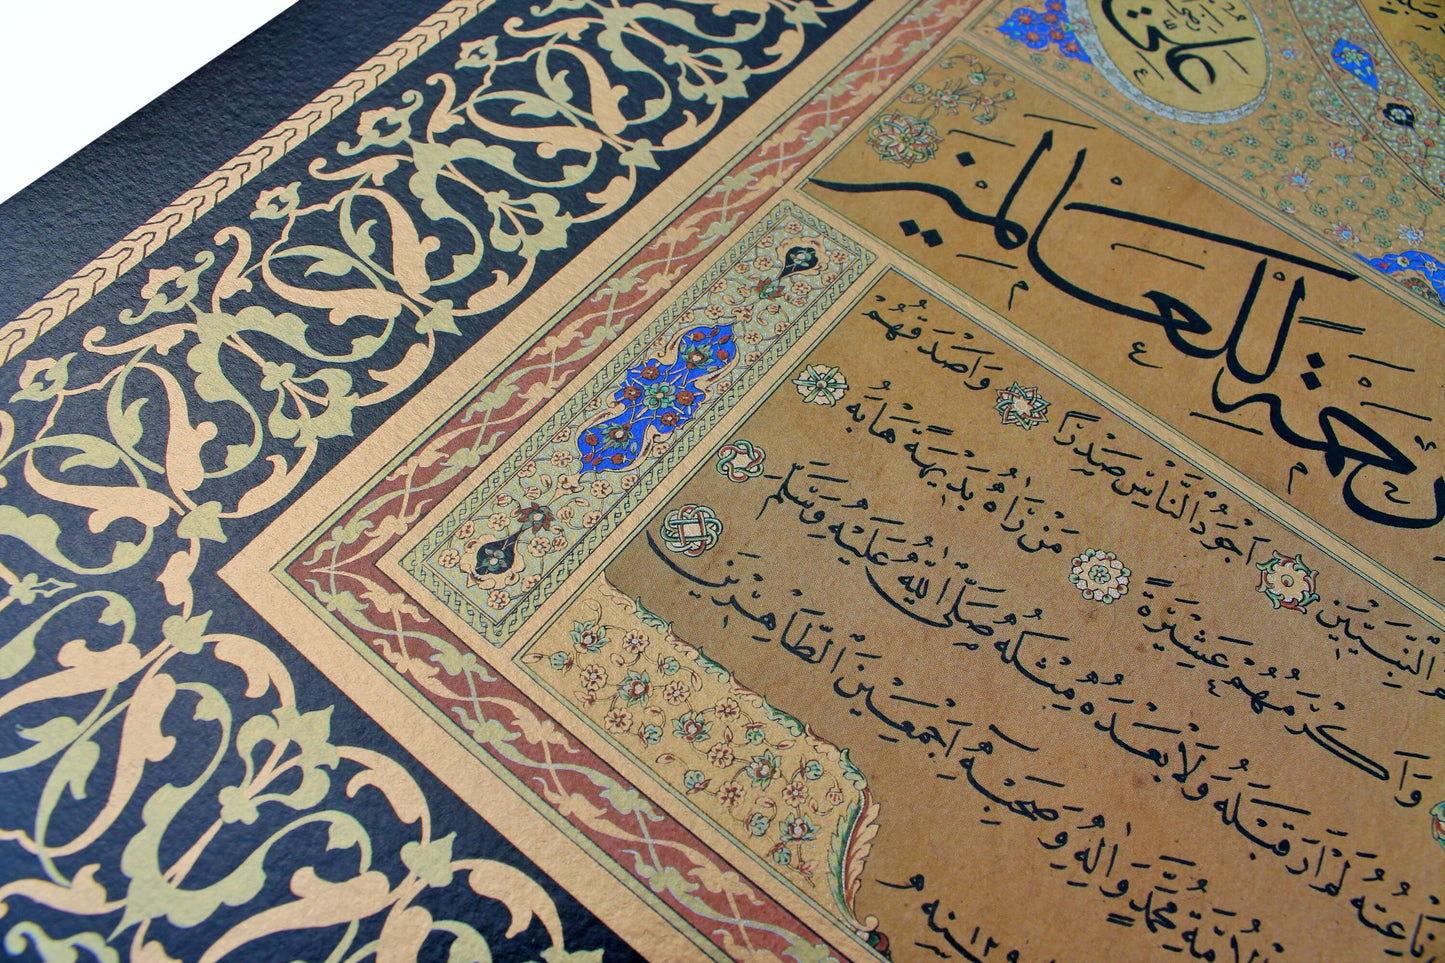 علي
رحمة للعالمين
النبيين اجود الناس صدرا واصدقهم
واكرمهم عشيرة من رآه بديهة هابه
ناعته لم ار قبله ولا بعده مثله صلى الله عليه وسلم
الامة محمد وآله وصحبه اجمعين الطاهرين